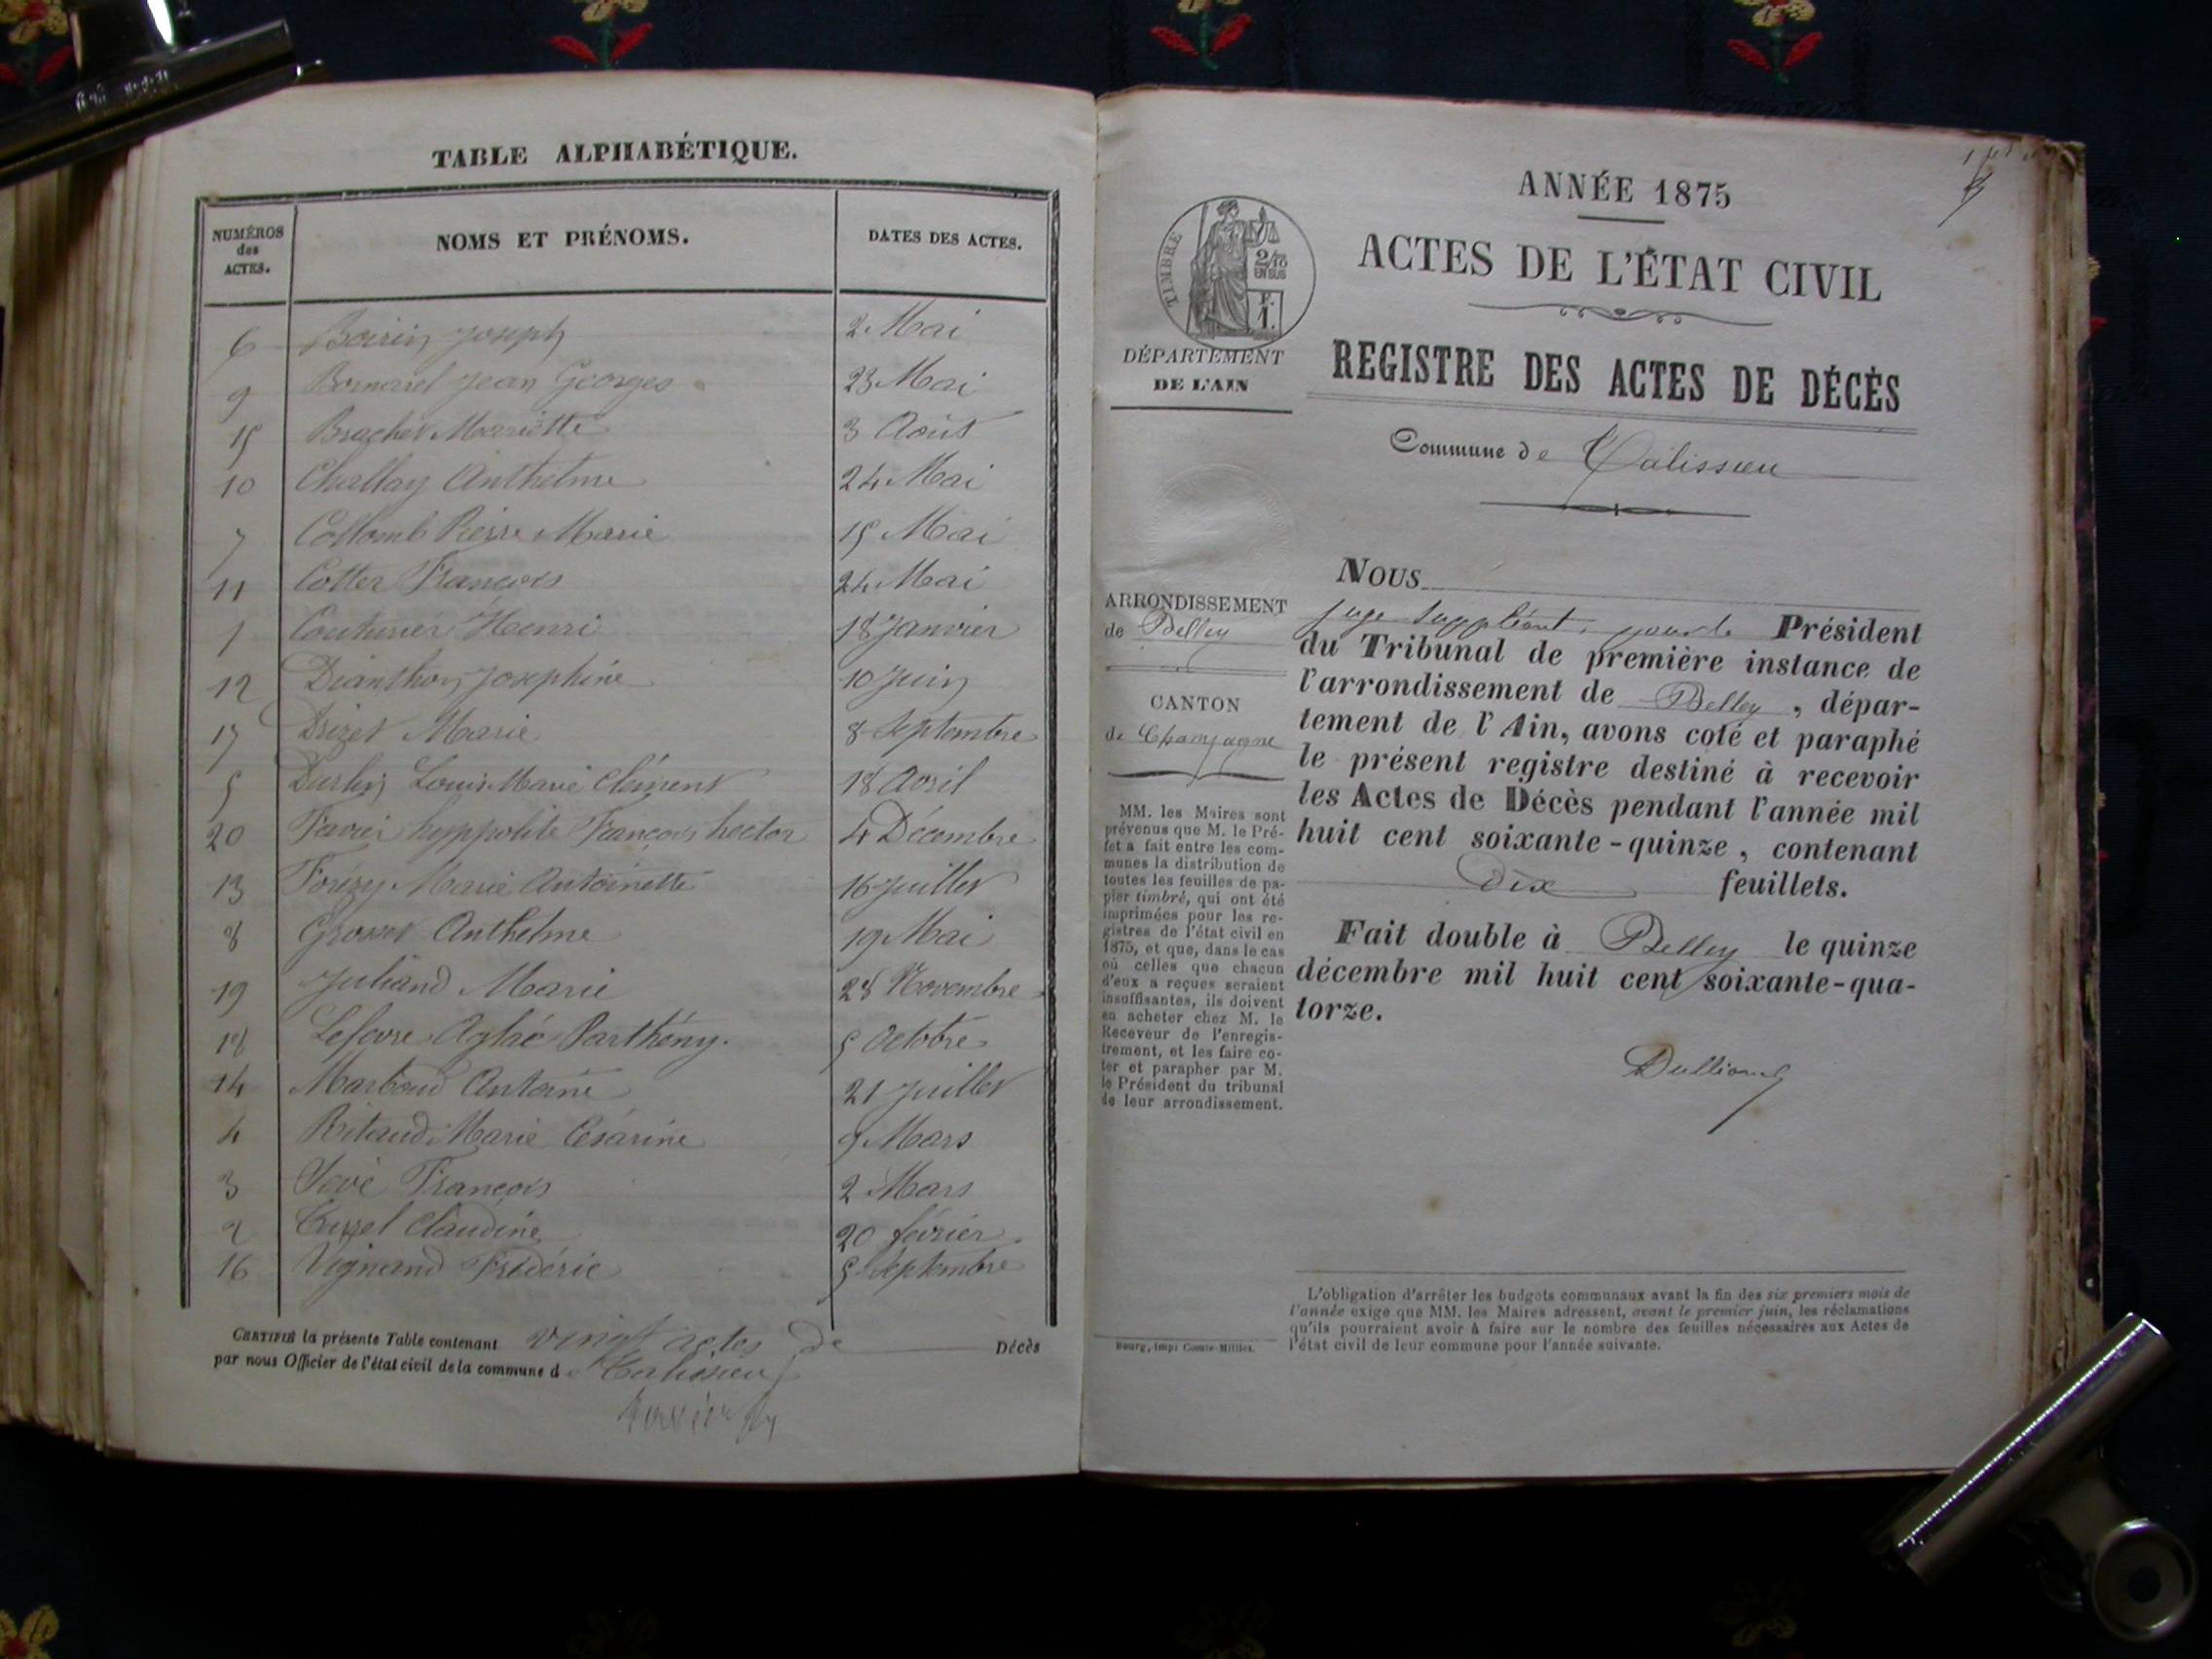 TABLE ALPHABÉTIQUE.
NUMÉROS des ACTES. NOMS ET PRÉNOMS. DATES DES ACTES.
6 Boirin Joseph 2 Mai
9 Bornarel Jean Georges 23 Mai
15 Brachet Mariette 3 Août
10 Challay Anthelme 24 Mai
7 Collomb Pierre Marie 15 Mai
11 Cotter François 24 Mai
1 Couturier Henri 18 Janvier
12 Dianthon Josephine 10 Juin
17 Drizet Marie 8 Septembre
5 Louis Marie Clément 18 Avril
20 Favier hyppolite François hector 4 Décembre
13 Marie Antoinette 16 Juillet
8 Anthelme 19 Mai
19 Juliand Marie 28 Novembre
18 Lefevre Aglaé Parthény. 5 Octobre
14 Antoine 21 Juillet
4 Ritaud Marie Césarine 9 Mars
3 François 2 Mars
2 Claudine 20 février
16 Vignand Frédéric 5 Septembre
CERTIFIÉ la présente Table contenant vingt actes de Décès
par nous Officier de l'état civil de la commune de Talissieu
ANNÉE 1875
ACTES DE L'ÉTAT CIVIL
REGISTRE DES ACTES DE DÉCÈS
TIMBRE
2/10
EN SUS
F.
1.
DÉPARTEMENT
DE L'AIN
Commune de Talissieu
ARRONDISSEMENT
de Belley
CANTON
de Champagne
MM. les Maires sont
prévenus que M. le Pré-
fet a fait entre les com-
munes la distribution de
toutes les feuilles de pa-
pier timbré, qui ont été
imprimées pour les re-
gistres de l'état civil en
1875, et que, dans le cas
où celles que chacun
d'eux a reçues seraient
insuffisantes, ils doivent
en acheter chez M. le
Receveur de l'enregis-
trement, et les faire co-
ter et parapher par M.
le Président du tribunal
de leur arrondissement.
Bourg, impr Comte-Milliet.
NOUS
juge suppléant, pour le Président
du Tribunal de première instance de
l'arrondissement de Belley, dépar-
tement de l'Ain, avons coté et paraphé
le présent registre destiné à recevoir
les Actes de Décès pendant l'année mil
huit cent soixante-quinze, contenant
dix feuillets.
Fait double à Belley le quinze
décembre mil huit cent soixante-qua-
torze.
L'obligation d'arrêter les budgets communaux avant la fin des six premiers mois de
l'année exige que MM. les Maires adressent, avant le premier juin, les réclamations
qu'ils pourraient avoir à faire sur le nombre des feuilles nécessaires aux Actes de
l'état civil de leur commune pour l'année suivante.